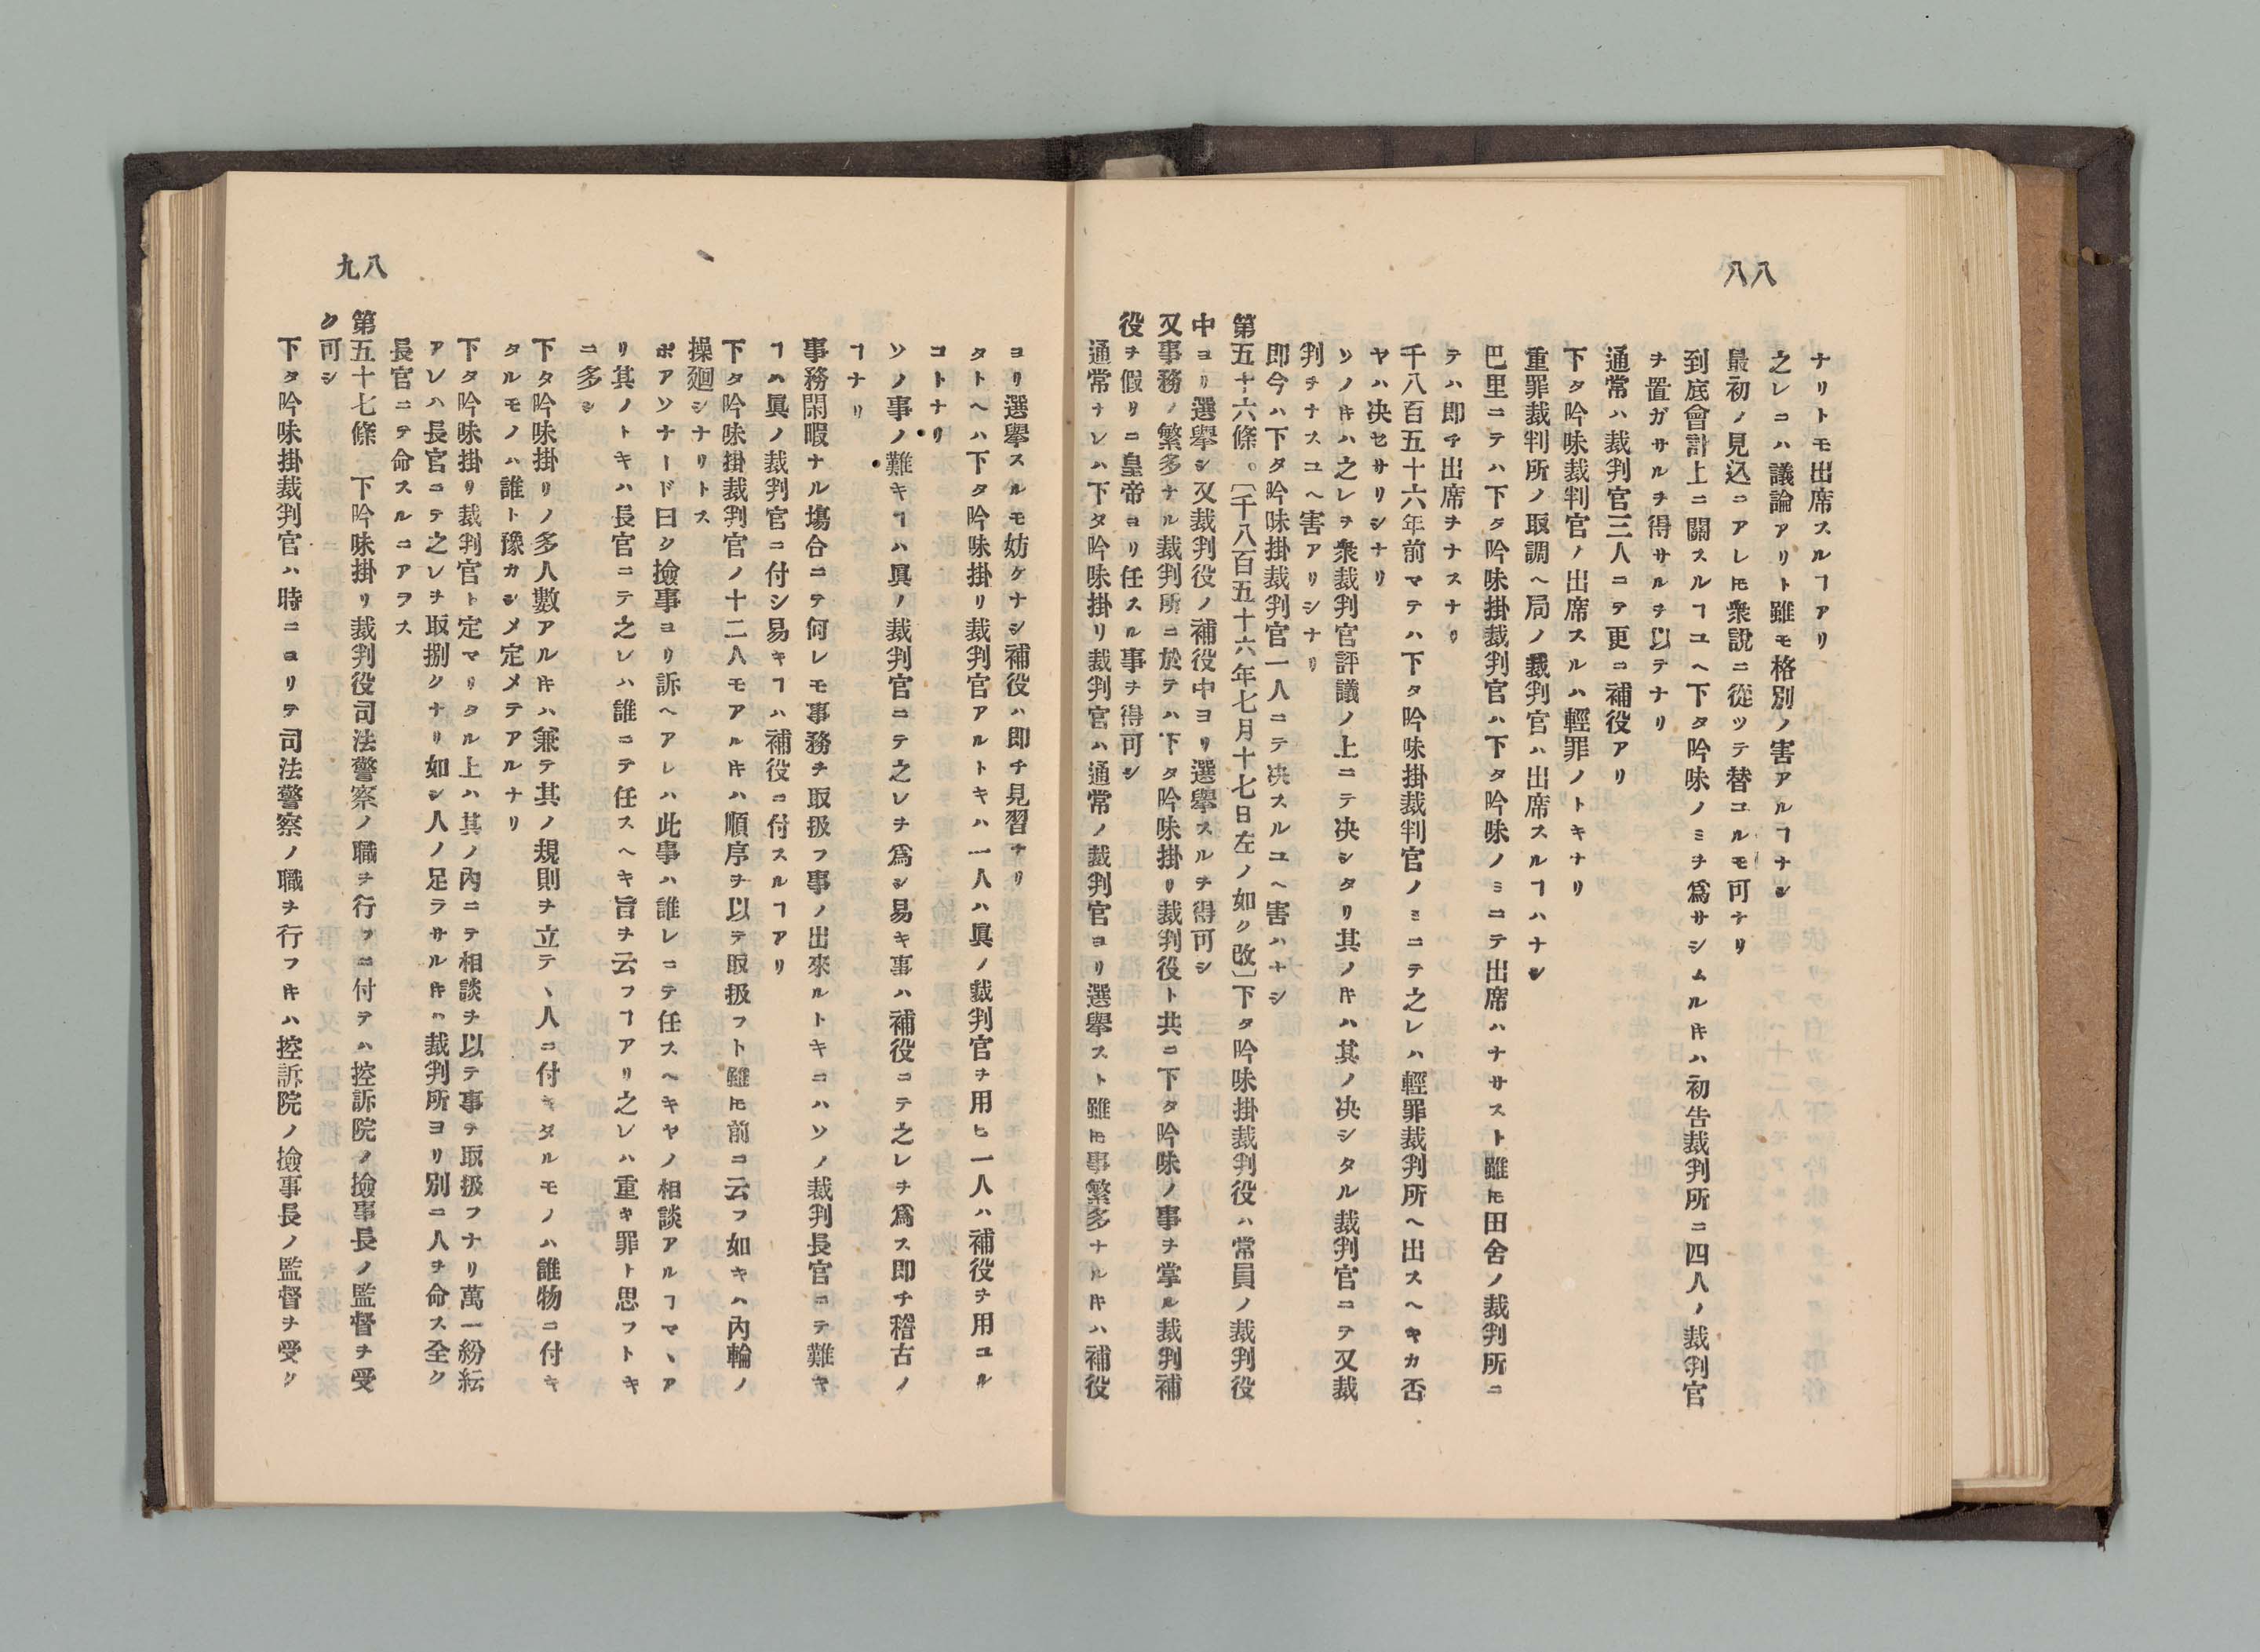 八八
ナリトモ出席スルヿアリ
之レニハ議論アリト雖モ格別ノ害アルヿナシ
最初ノ見込ニアレ𪜈衆說ニ從ツテ替ユルモ可ナリ
到底會計上ニ關スルヿユヘ下タ吟味ノミヲ爲サシムルキハ初告裁判所ニ四人ノ裁判官
ヲ置ガサルヲ得サルヲ以テナリ
通常ハ裁判官三人ニテ更ニ補役アリ
下タ吟味裁判官ノ出席スルハ輕罪ノトキナリ
重罪裁判所ノ取調ヘ局ノ裁判官ハ出席スルヿハナシ
巴里ニテハ下タ吟味掛裁判官ハ下タ吟味ノミニテ出席ハナサスト雖𪜈田舍ノ裁判所ニ
テハ即チ出席ヲナスナリ
千八百五十六年前マテハ下タ吟味掛裁判官ノミニテ之レハ輕罪裁判所ヘ出スヘキカ否
ヤハ決セサリシナリ
ソノ𬼀ハ之レヲ衆裁判官評議ノ上ニテ決シタリ其ノ𬼀ハ其ノ決シタル裁判官ニテ又裁
判ヲナスユヘ害アリシナリ
即今ハ下タ吟味掛裁判官一人ニテ決スルユヘ害ハナシ
第五十六條。〔千八百五十六年七月十七日左ノ如ク改〕下タ吟味掛裁判役ハ常員ノ裁判役
中ヨリ選舉シ又裁判役ノ補役中ヨリ選舉スルヲ得可シ
又事務ノ繁多ナル裁判所ニ於テハ下タ吟味掛リ裁判役ト共ニ下タ吟味ノ事ヲ掌ル裁判補
役ヲ假リニ皇帝ヨリ任スル事ヲ得可シ
通常ナレハ下タ吟味掛リ裁判官ハ通常ノ裁判官ヨリ選舉スト雖𪜈事繁多ナルキハ補役
八九
ヨリ選舉スルモ妨ケナシ補役ハ即チ見習ナリ
タトヘハ下タ吟味掛リ裁判官アルトキハ一人ハ眞ノ裁判官ヲ用ヒ一人ハ補役ヲ用ユル
コトナリ
ソノ事ノ難キヿハ眞ノ裁判官ニテ之レヲ爲シ易キ事ハ補役ニテ之レヲ爲ス即チ稽古ノ
ヿナリ
事務閑暇ナル塲合ニテ何レモ事務ヲ取扱フ事ノ出來ルトキニハソノ裁判長官ニテ難キ
ヿハ眞ノ裁判官ニ付シ易キヿハ補役ニ付スルヿアリ
下タ吟味掛裁判官ノ十二人モアルキハ順序ヲ以テ取扱フト雖𪜈前ニ云フ如キハ內輪ノ
操廻シナリトス
ボアソナード曰ク撿事ヨリ訴ヘアレハ此事ハ誰レニテ任スヘキヤノ相談アルヿマヽア
リ其ノトキハ長官ニテ之レハ誰ニテ任スヘキ旨ヲ云フヿアリ之レハ重キ罪ト思フトキ
ニ多シ
下タ吟味掛リノ多人數アルキハ兼テ其ノ規則ヲ立テヽ人ニ付キタルモノハ誰物ニ付キ
タルモノハ誰ト豫カシメ定メテアルナリ
下タ吟味掛リ裁判官ト定マリタル上ハ其ノ內ニテ相談ヲ以テ事ヲ取扱フナリ萬一紛紜
アレハ長官ニテ之レヲ取捌クナリ如シ人ノ足ラサルキハ裁判所ヨリ別ニ人ヲ命ス全ク
長官ニテ命スルニアラス
第五十七條　下吟味掛リ裁判役司法警察ノ職ヲ行フニ付テハ控訴院ノ撿事長ノ監督ヲ受
ク可シ
下タ吟味掛裁判官ハ時ニヨリテ司法警察ノ職ヲ行フキハ控訴院ノ撿事長ノ監督ヲ受ク